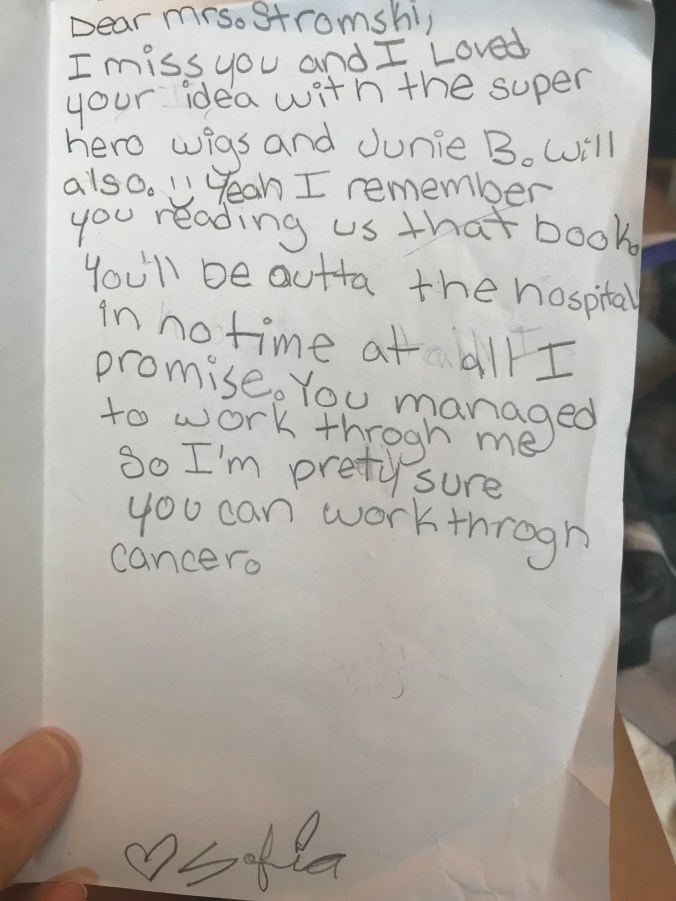 Dear mrs. Stromski,
I miss you and I Loved
your idea with the super
hero wigs and Junie B. will
also. !! Yeah I remember
you reading us that book.
You'll be outta the hospital
in no time at all I
promise. You managed
to work throgh me
So I'm prety sure
you can work throgh
cancer.
♡ Sofia